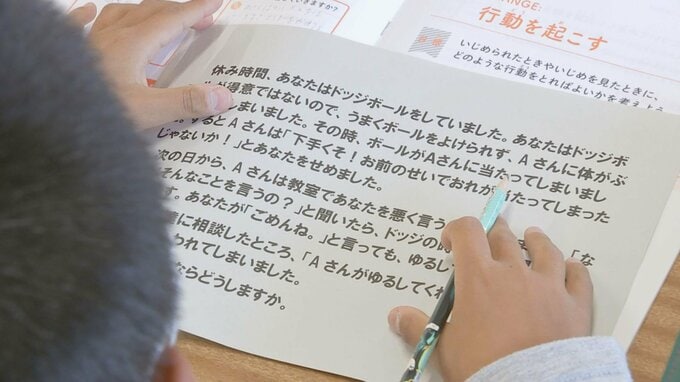 ていきますか？
ANGE:
行動を起こす
いじめられたときやいじめを見たときに、
どのような行動をとればよいかを考えよう
休み時間、あなたはドッジボールをしていました。あなたはドッジボ
が得意ではないので、うまくボールをよけられず、Aさんに体がぶ
しまいました。その時、ボールがAさんに当たってしまいまし
するとAさんは「下手くそ！お前のせいでおれが当たってしまった
じゃないか！」とあなたをせめました。
次の日から、Aさんは教室であなたを悪く言う
「な
そんなことを言うの？」と聞いたら、ドッジの時
す。あなたが「ごめんね。」と言っても、ゆるし
に相談したところ、「Aさんがゆるしてくれ
われてしまいました。
ならどうしますか。